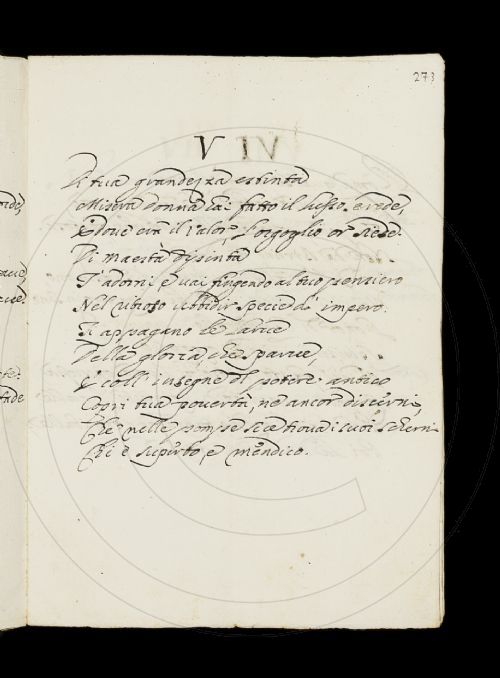 273
V
Di tua grandezza estinta
Misera donna hai fatto il lusso erede,
E dove era il valor, l'orgoglio or siede.
Di maestà dipinta
T'adorni, e vai fingendo al tuo pensiero
Nel vitioso ubbidir specie d'impero.
Ti appagano le larve
Della gloria, che sparve,
E coll' insegne del potere antico
Copri tua povertà, ne ancor discerni,
Che nelle pompe sue trova i suoi scherni
Chi è superbo, e mendico.